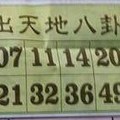 出天地八卦
07 11 14 20
21 32 36 49